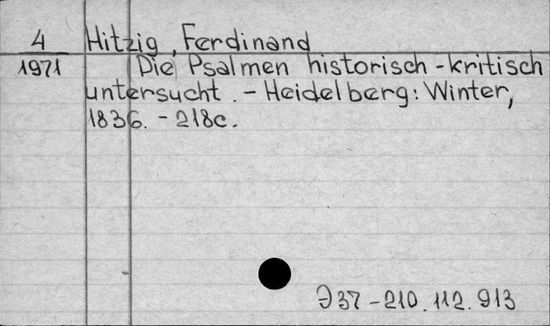 4 Hitzig, Ferdinand
1971 Die Psalmen historisch-kritisch
untersucht. - Heidelberg: Winter,
1836. - 218c.
Э37-210.112.913